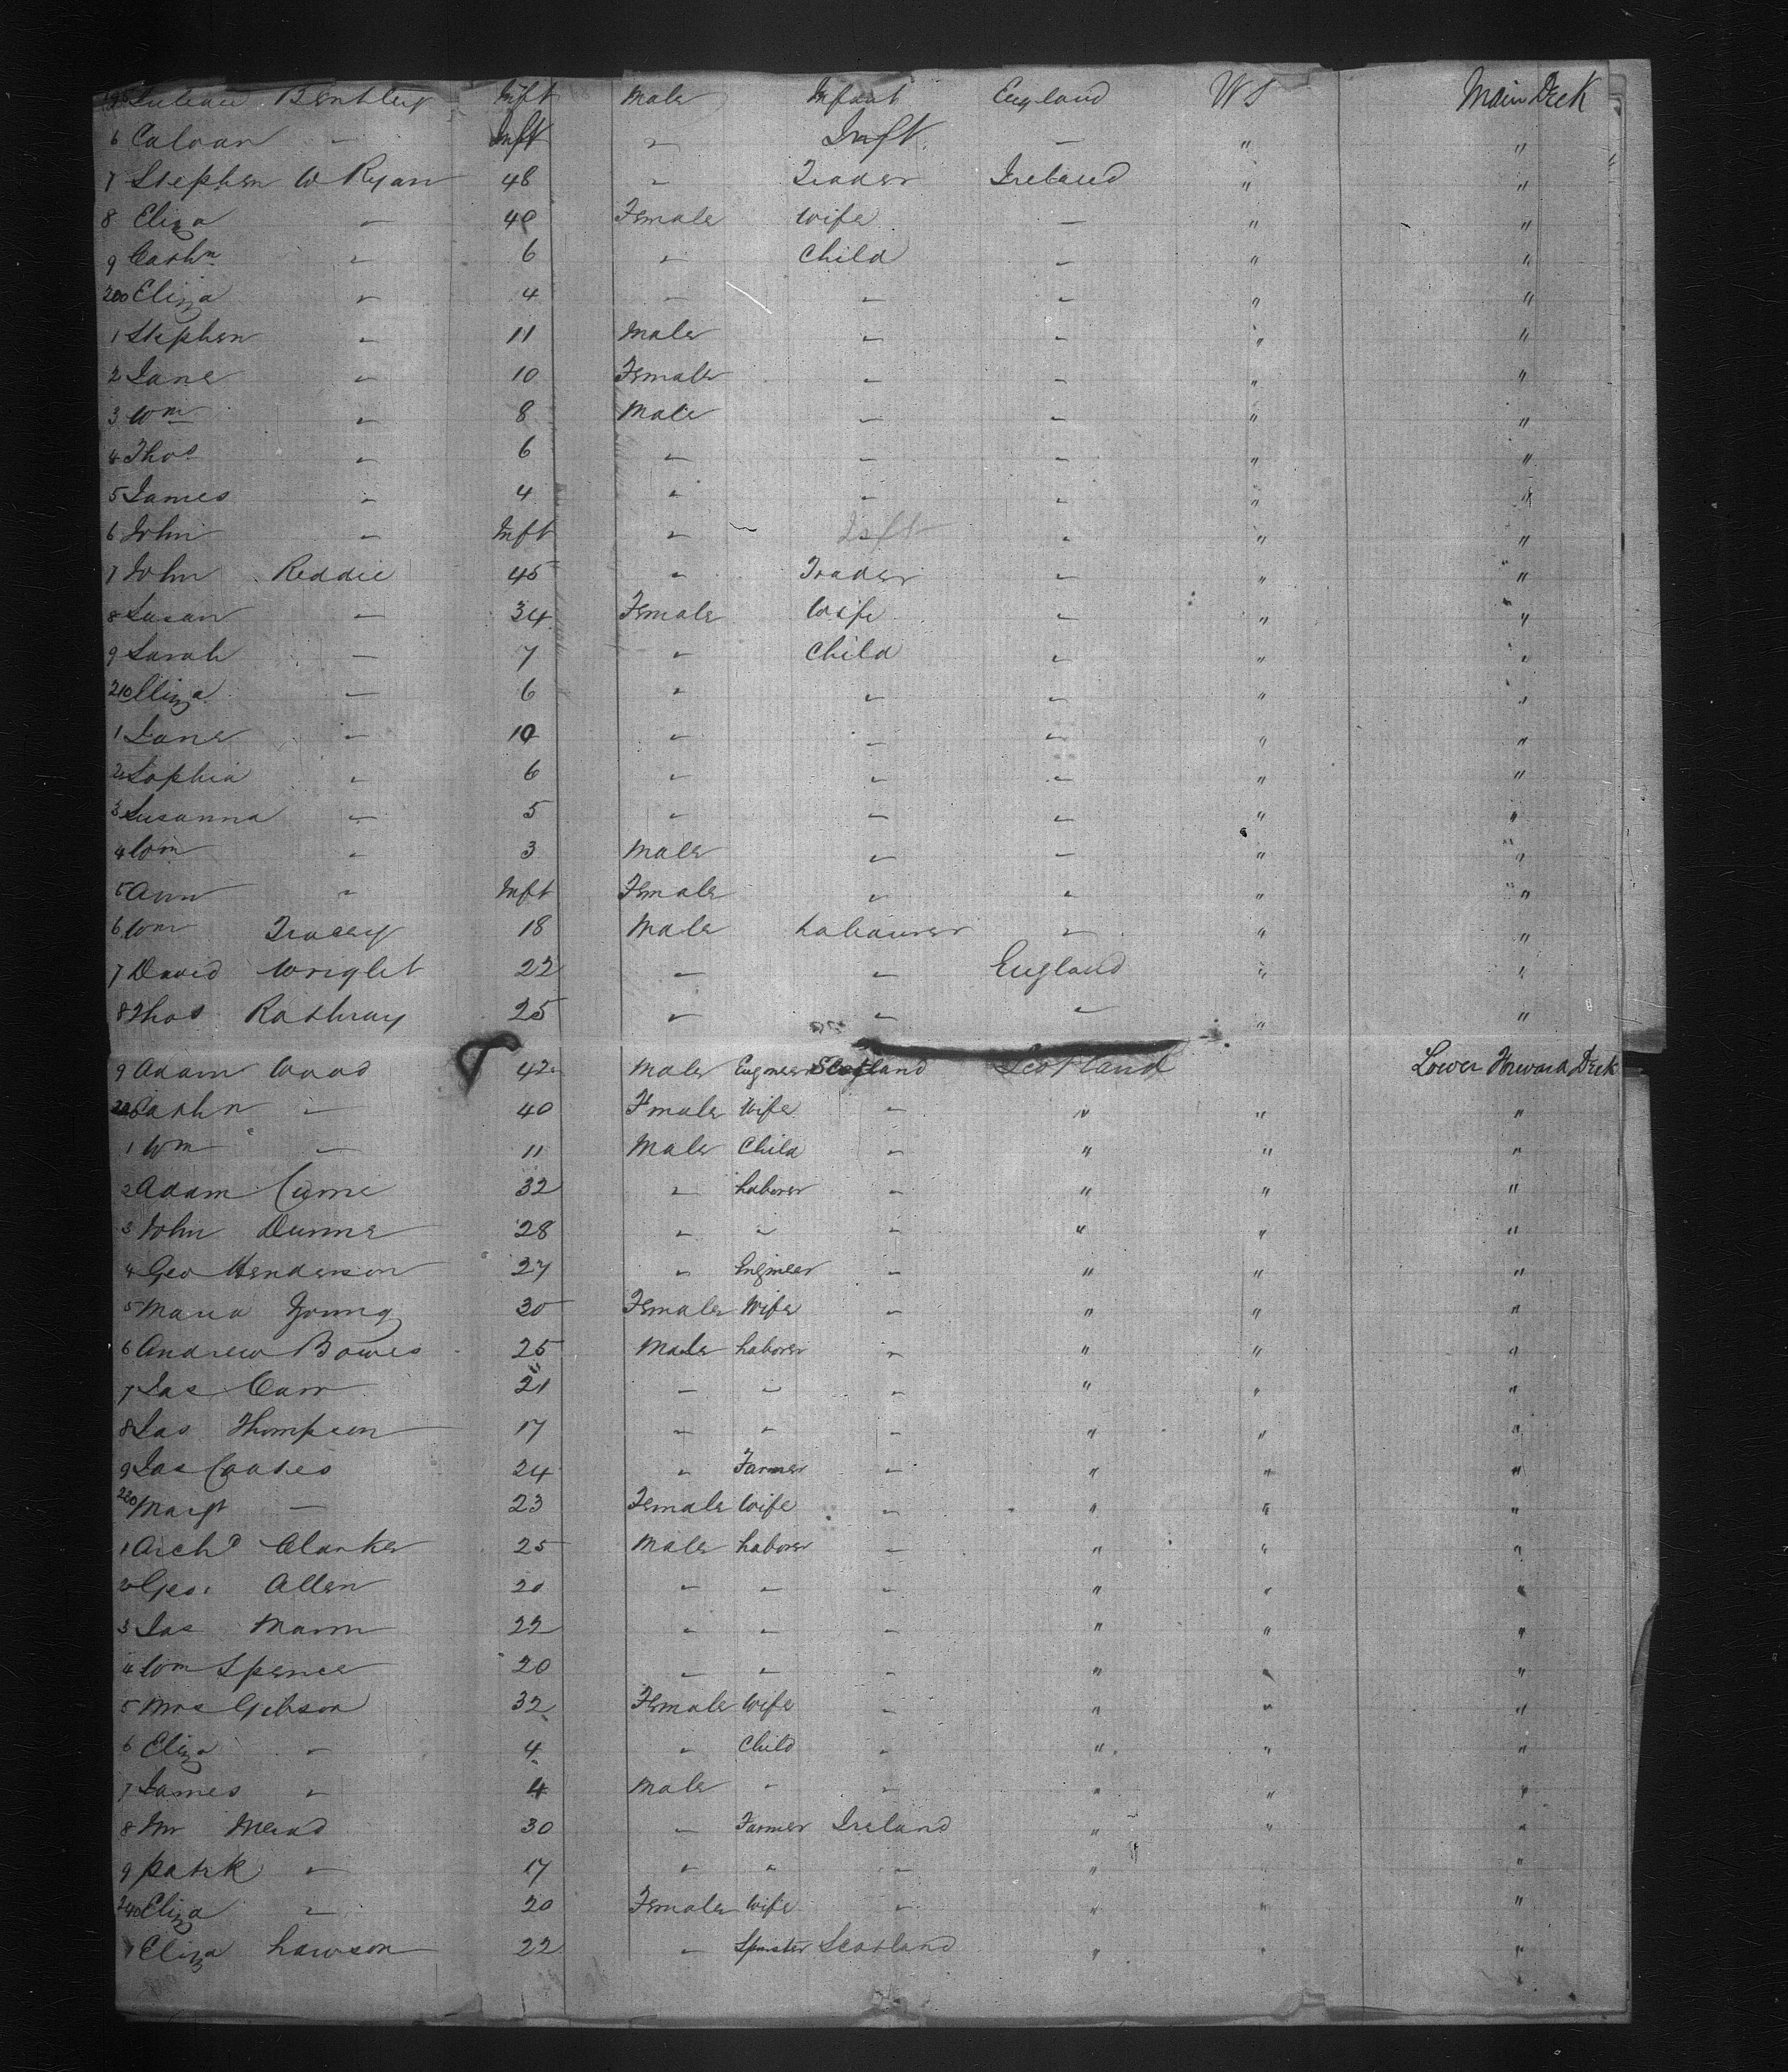 195 Bentley Inft Male Infant England US Main Deck
6 Calvan - Inft " Inft - " "
7 Stephen W Ryan 48 " Trader Ireland " "
8 Eliza - 40 Female Wife - " "
9 Cathn " 6 " Child " " "
200 Eliza " 4 " " " " "
1 Stephen " 11 Male " " " "
2 Jane " 10 Female " " " "
3 Wm " 8 Male " " " "
4 Thos " 6 " " " " "
5 James " 4 " " " " "
6 John " Inft " Inft " " "
7 John Reddie 45 " Trader " " "
8 Susan - 34 Female Wife " " "
9 Sarah - 7 " Child " " "
210 Eliza - 6 " " " " "
1 Jane " 10 " " " " "
2 Sophia " 6 " " " " "
3 Susanna " 5 " " " " "
4 Wm " 3 Male " " " "
5 Ann " Inft Female " " " "
6 Wm Tracey 18 Male Labourer " " "
7 David Wright 22 " " England " "
8 Thos Rathray 25 " " " " "
9 Adam Wood 42 Male Engineer Scotland Scotland Lower Forward Deck
220 Cathn " 40 Fmale Wife " " " "
1 Wm - 11 Male Child " " " "
2 Adam 32 " Laborer " " " "
3 John Dunne 28 " " " " " "
4 Geo Henderson 27 " Engineer " " " "
5 Maria Young 30 Female Wife " " " "
6 Andrew Bowes 25 Male Laborer " " " "
7 Jas Carr 21 " " " " " "
8 Jas Thompson 17 " " " " " "
9 Jas Coates 24 " Farmer " " " "
230 Margt - 23 Female Wife " " " "
1 Archd Clarke 25 Male Laborer " " " "
2 Geo. Allen 20 " " " " " "
3 Jas Mann 22 " " " " " "
4 Wm Spence 20 " " " " " "
5 Mrs Gibson 32 Female Wife " " " "
6 Eliza " 4 " Child " " " "
7 James " 4 Male " " " " "
8 Mr Mead 30 " Farmer Ireland " " "
9 Patrk " 17 " " " " " "
240 Eliza " 20 Female Wife " " " "
1 Eliza Lawson 22 " Spinster Scotland " " "